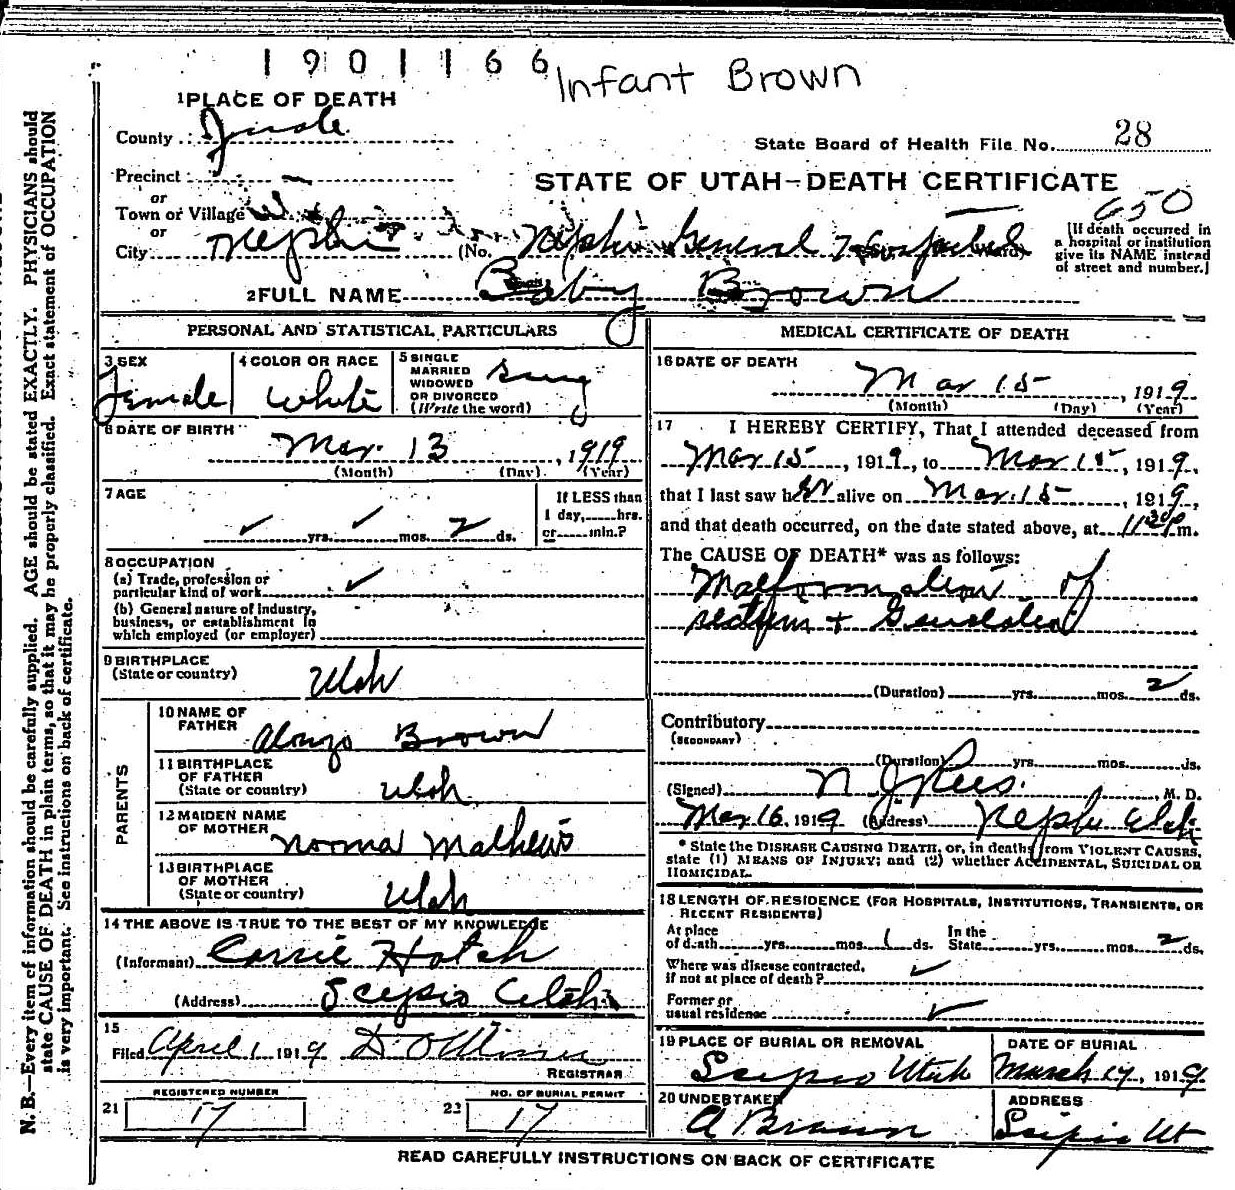 1901166
Infant Brown
1 PLACE OF DEATH
County Juab
State Board of Health File No. 28
Precinct
or
STATE OF UTAH—DEATH CERTIFICATE
650
Town or Village
or
City Nephi (No. Nephi General Hospital Ward)
[If death occurred in
a hospital or institution
give its NAME instead
of street and number.]
2 FULL NAME Baby Brown
PERSONAL AND STATISTICAL PARTICULARS
3 SEX
Female
4 COLOR OR RACE
White
5 SINGLE
MARRIED
WIDOWED
OR DIVORCED
(Write the word)
Sing
6 DATE OF BIRTH
Mar. 13, 1919
(Month) (Day) (Year)
7 AGE
yrs. mos. 2 ds.
If LESS than
1 day, hrs.
or min.?
8 OCCUPATION
(a) Trade, profession or
particular kind of work
(b) General nature of industry,
business, or establishment in
which employed (or employer)
9 BIRTHPLACE
(State or country) Utah
PARENTS
10 NAME OF
FATHER Alonzo Brown
11 BIRTHPLACE
OF FATHER
(State or country) Utah
12 MAIDEN NAME
OF MOTHER Norma Mathews
13 BIRTHPLACE
OF MOTHER
(State or country) Utah
14 THE ABOVE IS TRUE TO THE BEST OF MY KNOWLEDGE
(Informant) Carrie Hatch
(Address) Scipio Utah
15
Filed April 1 1919
REGISTRAR
REGISTERED NUMBER
21 17
NO. OF BURIAL PERMIT
22 17
MEDICAL CERTIFICATE OF DEATH
16 DATE OF DEATH
Mar 15, 1919
(Month) (Day) (Year)
17 I HEREBY CERTIFY, That I attended deceased from
Mar 15, 1919, to Mar 15, 1919,
that I last saw her alive on Mar. 15, 1919,
and that death occurred, on the date stated above, at 11 30 P m.
The CAUSE OF DEATH* was as follows:
Malformation of
rectum + Genitalia
(Duration) yrs. mos. 2 ds.
Contributory
(SECONDARY)
(Duration) yrs. mos. ds.
(Signed) N J Rees, M. D.
Mar 16, 1919 (Address) Nephi Utah
* State the DISEASE CAUSING DEATH, or, in deaths from VIOLENT CAUSES,
state (1) MEANS OF INJURY; and (2) whether ACCIDENTAL, SUICIDAL OR
HOMICIDAL.
18 LENGTH OF RESIDENCE (FOR HOSPITALS, INSTITUTIONS, TRANSIENTS, OR
RECENT RESIDENTS)
At place
of death yrs. mos. 1 ds. In the State yrs. mos. 2 ds.
Where was disease contracted,
if not at place of death?
Former or
usual residence
19 PLACE OF BURIAL OR REMOVAL
Scipio Utah
DATE OF BURIAL
March 17, 1919
20 UNDERTAKER
A Brown
ADDRESS
Scipio Ut
READ CAREFULLY INSTRUCTIONS ON BACK OF CERTIFICATE
N. B.—Every item of information should be carefully supplied. AGE should be stated EXACTLY. PHYSICIANS should
state CAUSE OF DEATH in plain terms, so that it may be properly classified. Exact statement of OCCUPATION
is very important. See instructions on back of certificate.